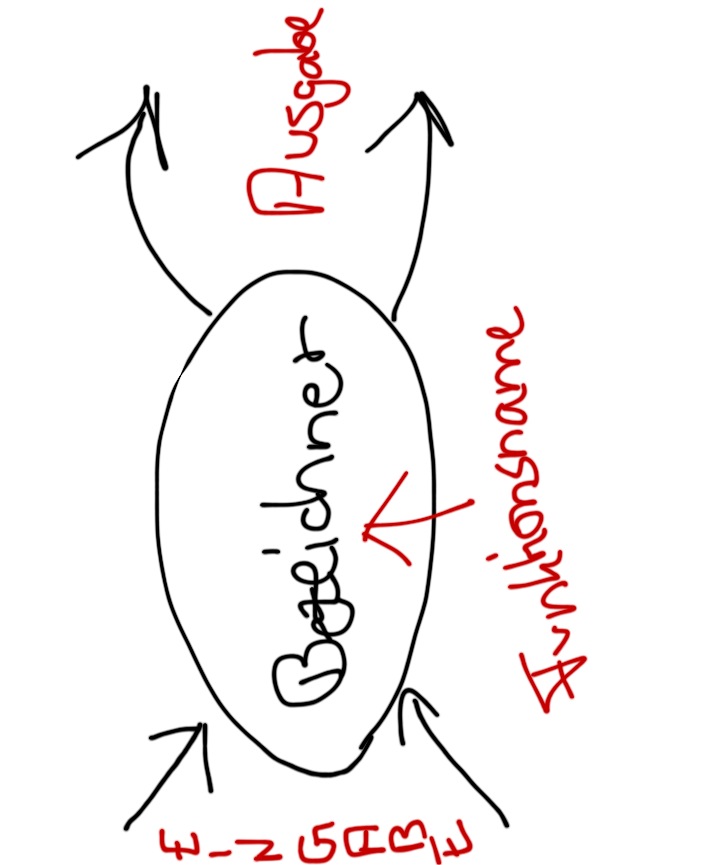 Ausgabe
Bezeichner
Funktionsname
EINGABE